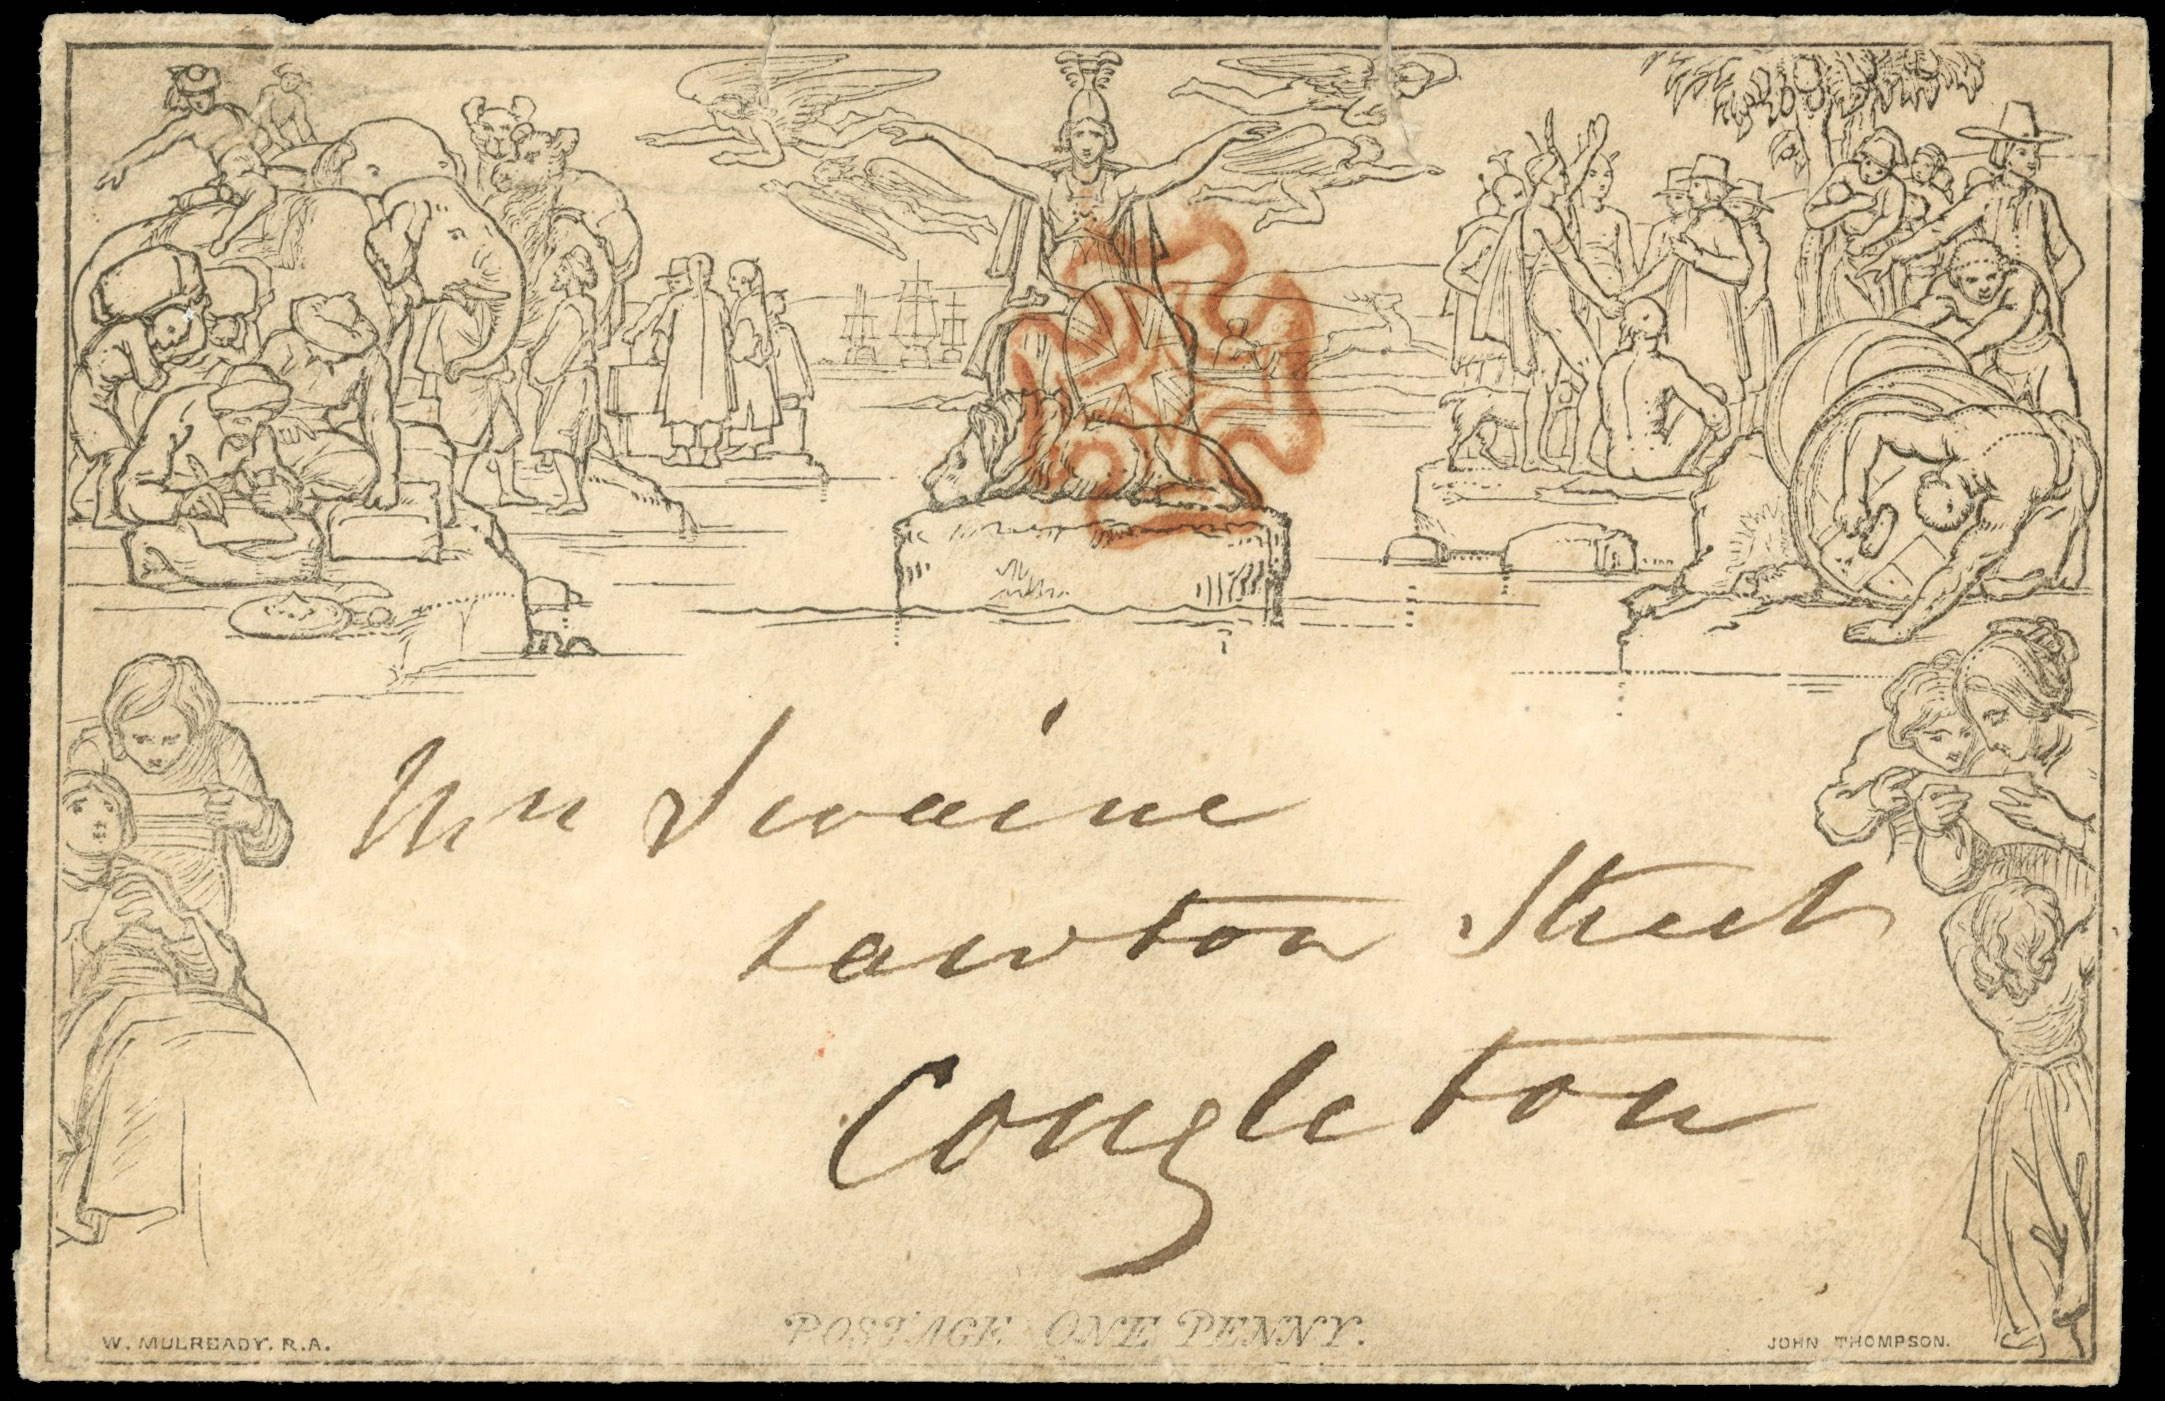 Mr Swaine
Lawton Street
Congleton
POSTAGE ONE PENNY.
W. MULREADY. R.A.
JOHN THOMPSON.